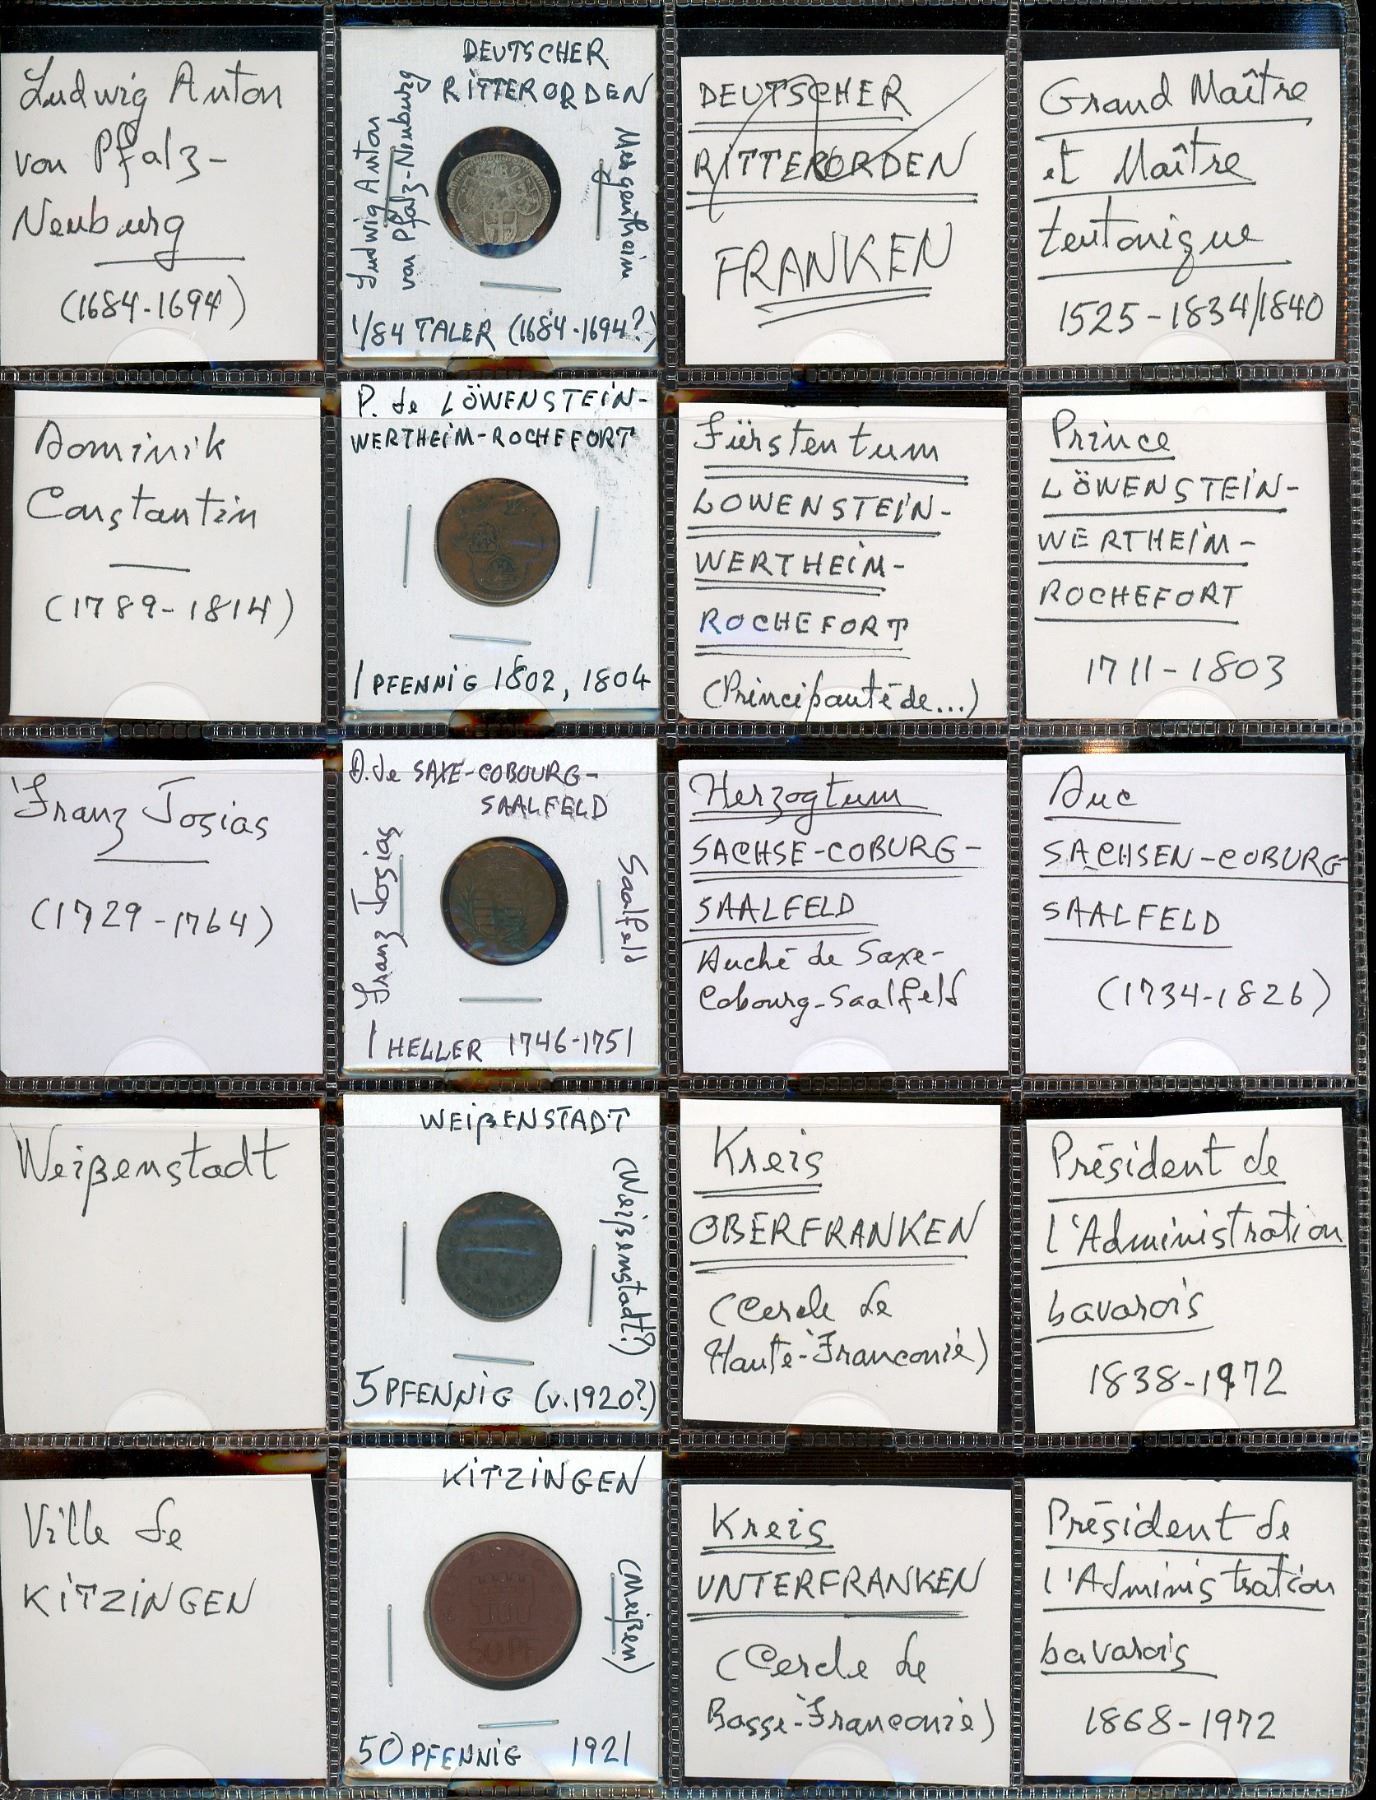 Ludwig Anton
von Pfalz-
Neuburg
(1684-1694)
DEUTSCHER
RITTERORDEN
Ludwig Anton
von Pfalz-Neuburg
Mergentheim
1/84 TALER (1684-1694?)
DEUTSCHER
RITTERORDEN
FRANKEN
Grand Maître
et Maître
teutonique
1525-1834/1840
Dominik
Constantin
(1789-1814)
P. de LÖWENSTEIN-
WERTHEIM-ROCHEFORT
1 PFENNIG 1802, 1804
Fürstentum
LOWENSTEIN-
WERTHEIM-
ROCHEFORT
(Principauté de...)
Prince
LÖWENSTEIN-
WERTHEIM-
ROCHEFORT
1711-1803
Franz Josias
(1729-1764)
D. de SAXE-COBOURG-
SAALFELD
Franz Josias
Saalfeld
1 HELLER 1746-1751
Herzogtum
SACHSE-COBURG-
SAALFELD
Duché de Saxe-
Cobourg-Saalfeld
Duc
SACHSEN-COBURG-
SAALFELD
(1734-1826)
Weißenstadt
WEIßENSTADT
(Weißenstadt?)
5 PFENNIG (v.1920?)
Kreis
OBERFRANKEN
(Cercle de
Haute-Franconie)
Président de
l'Administration
bavarois
1838-1972
Ville de
KITZINGEN
KITZINGEN
50 PF
(Meißen)
50 PFENNIG 1921
Kreis
UNTERFRANKEN
(Cercle de
Basse-Franconie)
Président de
l'Administration
bavarois
1868-1972